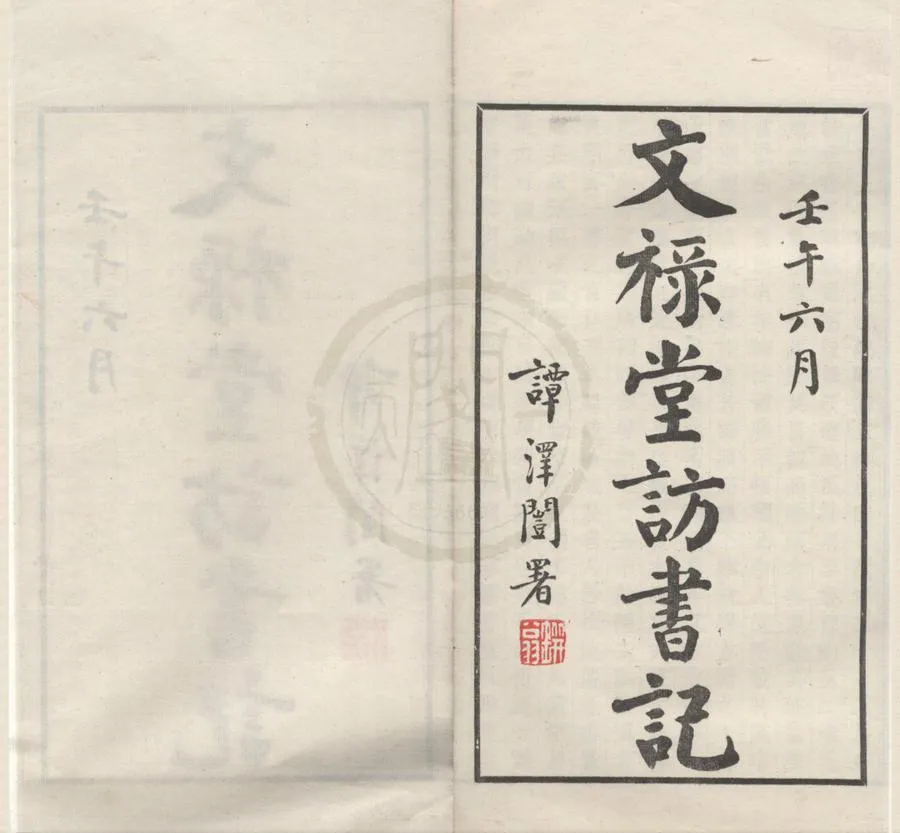 壬午六月
文祿堂訪書記
譚澤闓署